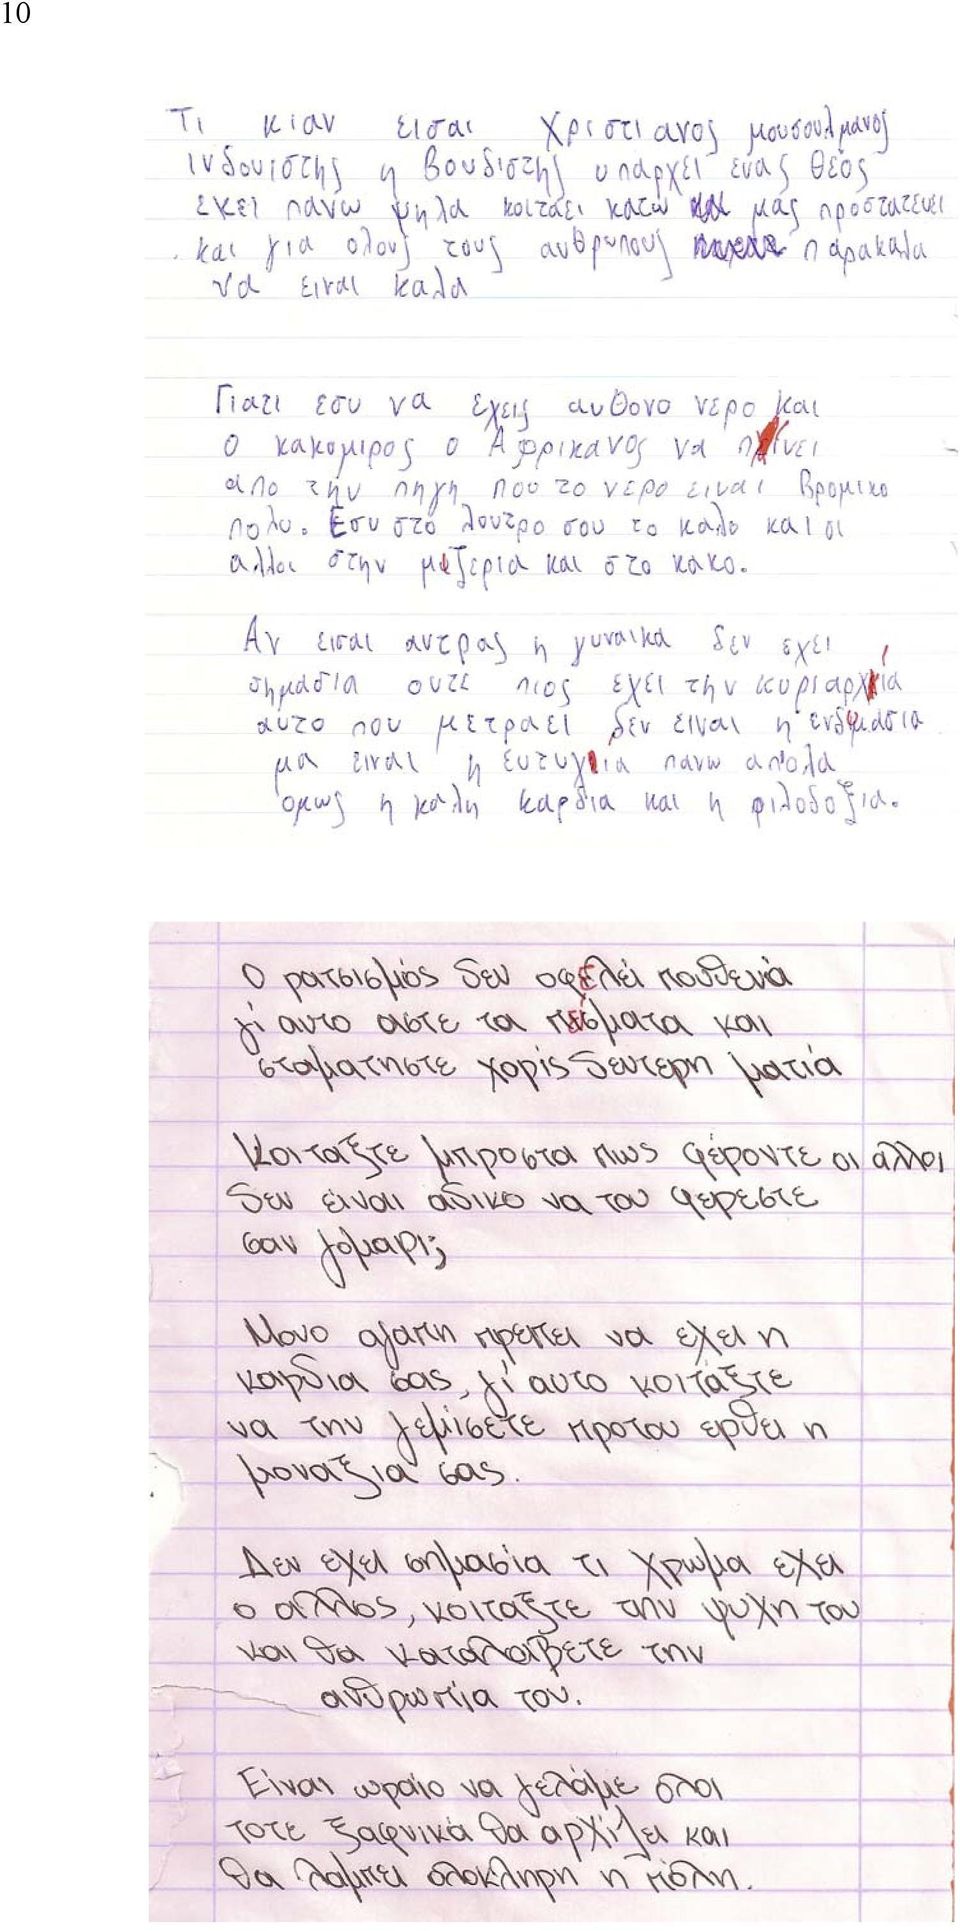 10
Τι κιαν εισαι Χριστιανος μουσουλμανος
ινδουιστης η βουδιστης υπαρχει ενας θεός
εκεί πανω ψηλα κοιταει κατω μας προστατευει
και για ολους τους ανθρωπους παρακαλα
να ειναι καλα
Γιατι εσυ να εχεις αυθονο νερο και
ο κακομιρος ο Αφρικανος να πίνει
απο την πηγη που το νερο ειναι βρομικο
πολυ. Εσυ στο λουτρο σου το καλο και οι
αλλοι στην μιζερια και στο κακο.
Αν εισαι αντρας η γυναικα δεν εχει
σημασια ουτε πιος έχει την κυριαρχία
αυτο που μετραει δεν ειναι η ενδυμάσια
μα ειναι η ευτυχία πανω απ'ολα
ομως η καλη καρδια και η φιλοδοξια.
Ο ρατσισμός δεν οφελεί πουθενά
γι αυτο αστε τα πείσματα και
σταματηστε χορίς δευτερη ματιά
Κοιταξτε μπροστα πως φέροντε οι αλλοι
δεν ειναι αδικο να του φερεστε
σαν γομαρι;
Μονο αγαπη πρεπει να εχει η
καρδια σας, γι' αυτο κοιτάξτε
να την γεμίσετε προτου ερθει η
μοναξια σας.
Δεν εχει σημασία τι χρωμα εχει
ο αλλος, κοιταξτε την ψυχη του
και θα καταλαβετε την
ανθρωπια του.
Είναι ωραίο να γελάμε ολοι
τοτε ξαφνικά θα αρχίζει και
θα λάμπει ολοκληρη η πόλη.